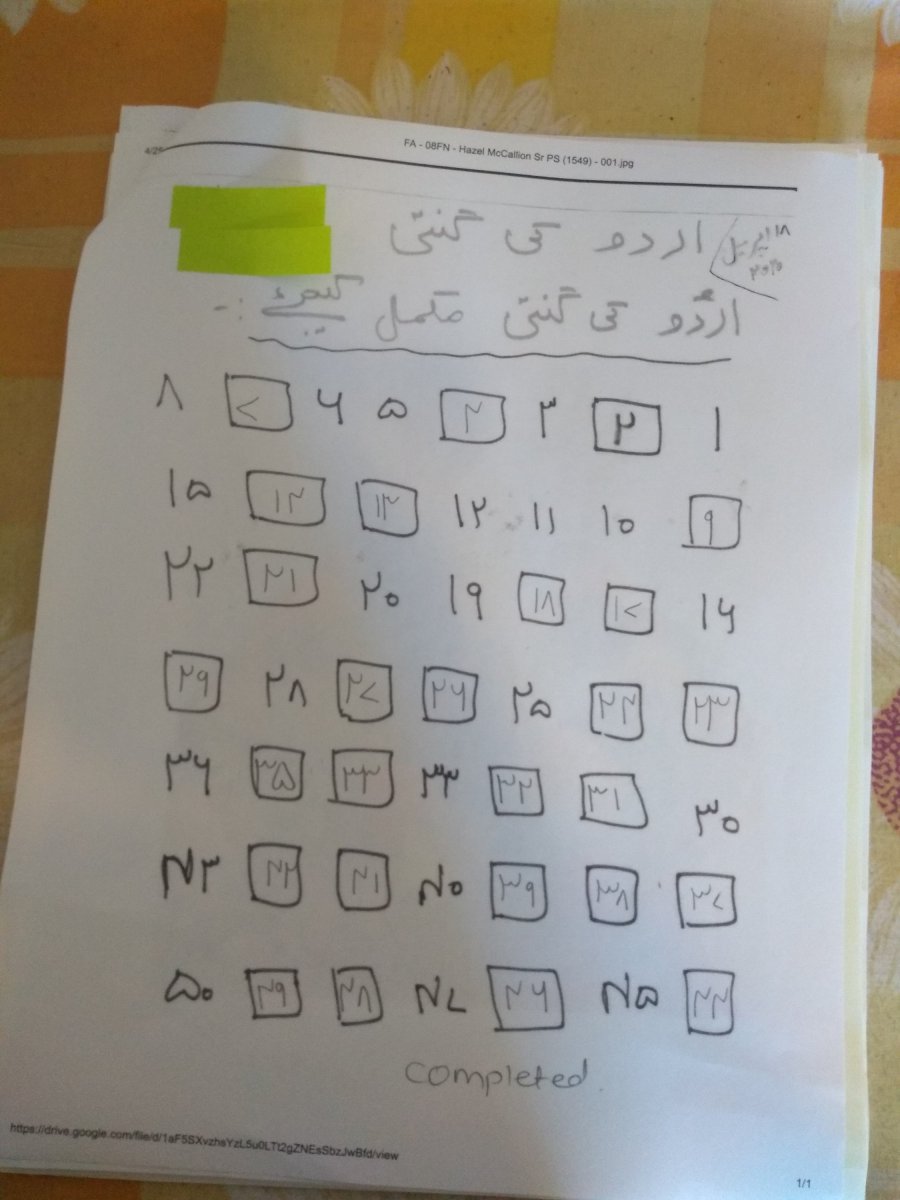 4/25 FA - 08FN - Hazel McCallion Sr PS (1549) - 001.jpg
۱۸ اپریل ۲۰۲۰
اردو کی گنتی
اردُو کی گنتی مکمل کیجیے :-
۱ ۲ ۳ ۴ ۵ ۶ ۷ ۸
۹ ۱۰ ۱۱ ۱۲ ۱۳ ۱۴ ۱۵
۱۶ ۱۷ ۱۸ ۱۹ ۲۰ ۲۱ ۲۲
۲۳ ۲۴ ۲۵ ۲۶ ۲۷ ۲۸ ۲۹
۳۰ ۳۱ ۳۲ ۳۳ ۳۴ ۳۵ ۳۶
۳۷ ۳۸ ۳۹ ۴۰ ۴۱ ۴۲ ۴۳
۴۴ ۴۵ ۴۶ ۴۷ ۴۸ ۴۹ ۵۰
completed.
https://drive.google.com/file/d/1aF5SXvzhsYzL5u0LTt2gZNEsSbzJwBfd/view
1/1